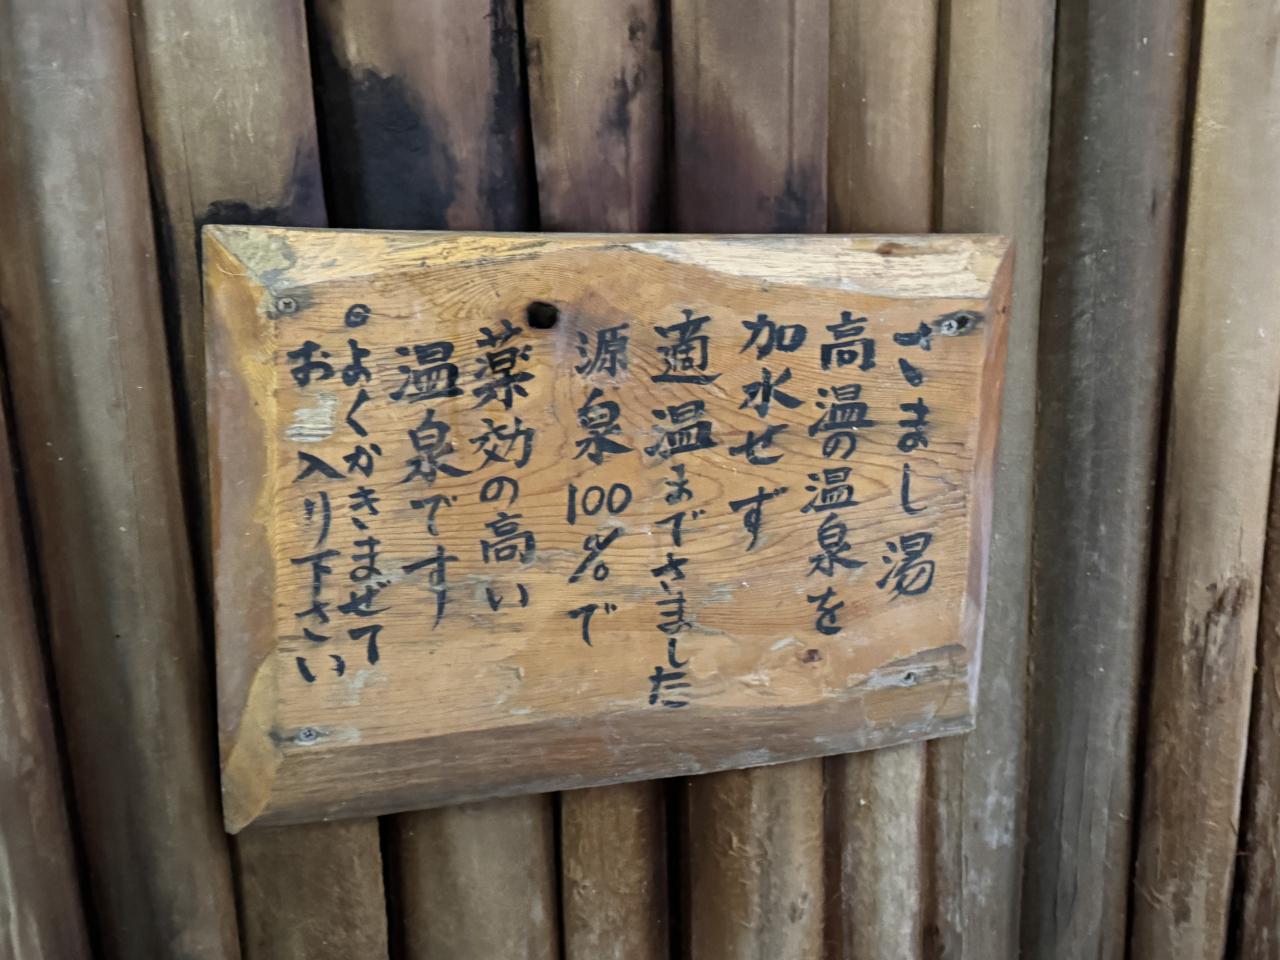 さまし湯
高温の温泉を
加水せず
適温までさました
源泉100%で
薬効の高い
温泉です
◎よくかきまぜて
お入り下さい